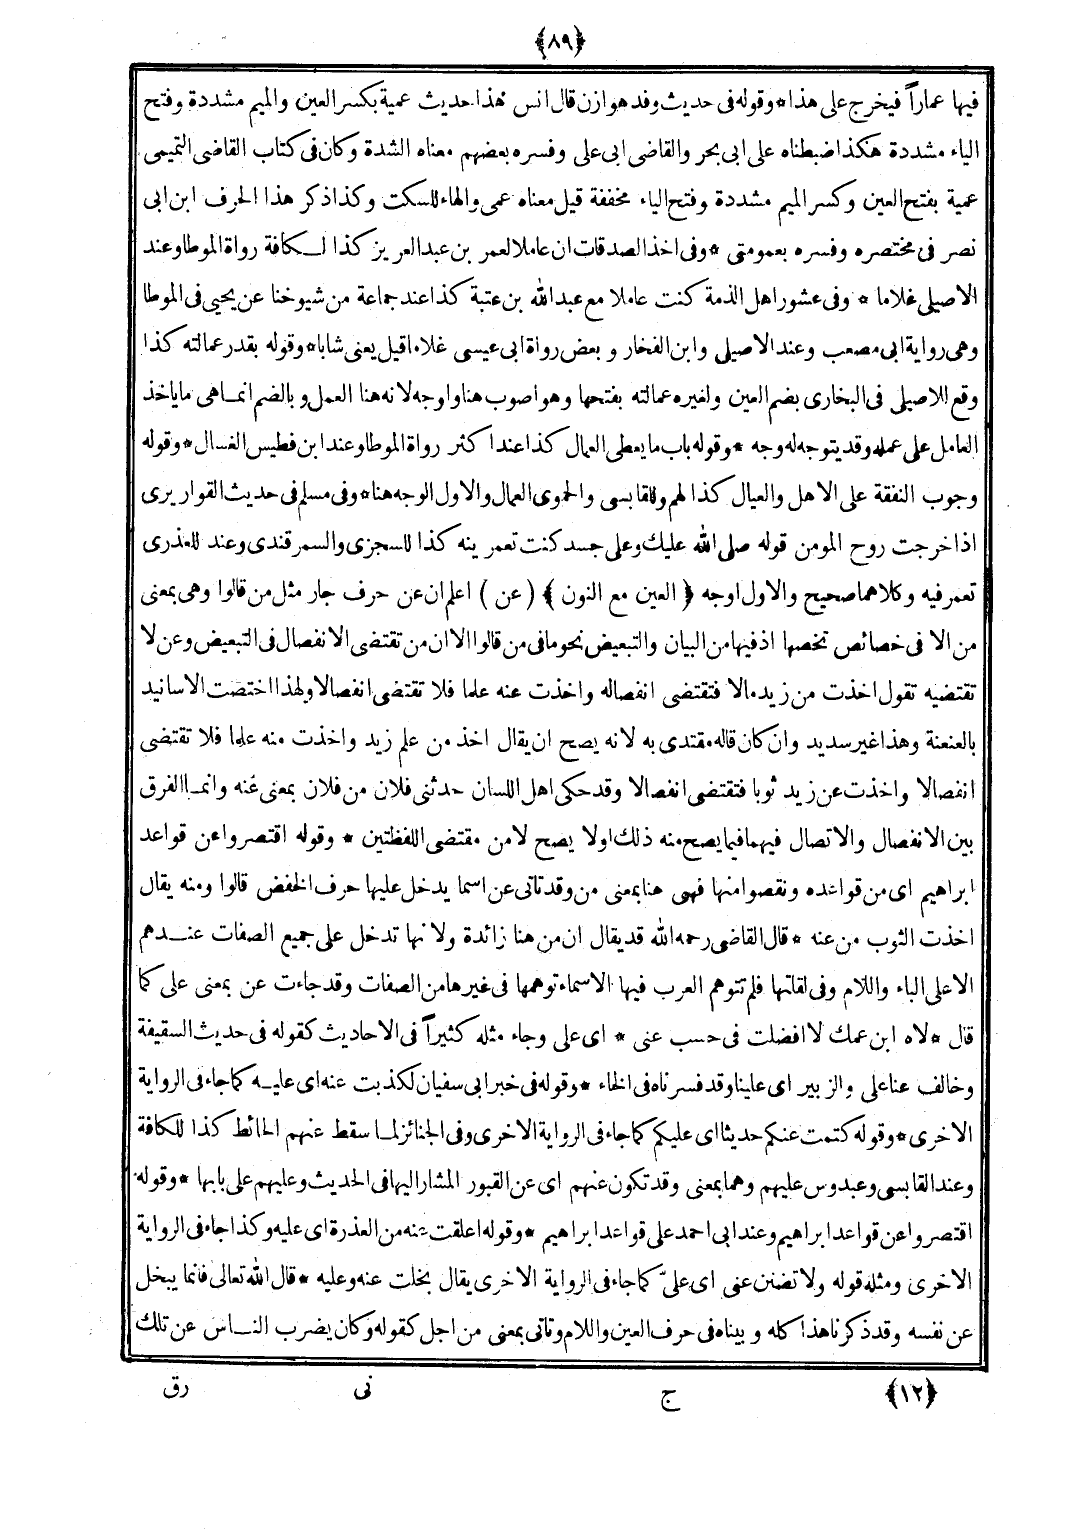 ﴿٨٩﴾
فيها عماراً فيخرج على هذا * وقوله فى حديث وفد هوازن قال انس هذا حديث عمية بكسر العين والميم مشددة وفتح
الياء مشددة هكذا ضبطناه على ابى بحر والقاضى ابى على وفسره بعضهم معناه الشدة وكان فى كتاب القاضى التميمى
عمية بفتح العين وكسر الميم مشددة وفتح الياء مخففة قيل معناه عمى والهاء للسكت وكذا ذكر هذا الحرف ابن ابى
نصر فى مختصره وفسره بعمومتى * وفى اخذ الصدقات ان عاملا لعمر بن عبد العزيز كذا لكافة رواة الموطا وعند
الاصيلى غلاما * وفى عشور اهل الذمة كنت عاملا مع عبد الله بن عتبة كذا عند جماعة من شيوخنا عن يحيى فى الموطا
وهى رواية ابى مصعب وعند الاصيلى وابن الفخار وبعض رواة ابى عيسى غلاما قيل يعنى شابا * وقوله بقدر عمالته كذا
وقع للاصيلى فى البخارى بضم العين ولغيره عمالته بفتحها وهو اصوب هنا واوجه لانه هنا العمل وبالضم انما هى ما ياخذ
العامل على عمله وقد يتوجه له وجه * وقوله باب ما يعطى العمال كذا عند اكثر رواة الموطا وعند ابن فطيس الغسال * وقوله
وجوب النفقة على الاهل والعيال كذا لهم وللقابسى والحموى العمال والاول الوجه هنا * وفى مسلم فى حديث القواريرى
اذا خرجت روح المومن قوله صلى الله عليك وعلى جسد كنت تعمرينه كذا للسجزى والسمرقندى وعند للعذرى
تعمر فيه وكلاهما صحيح والاول اوجه ﴿ العين مع النون ﴾ ( عن ) اعلم ان عن حرف جار مثل من قالوا وهى بمعنى
من الا فى خصائص تخصها اذ فيها من البيان والتبعيض نحو ما فى من قالوا الا ان من تقتضى الانفصال فى التبعيض وعن لا
تقتضيه تقول اخذت من زيد مالا فتقتضى انفصاله واخذت عنه علما فلا تقتضى انفصالا ولهذا اختصت الاسانيد
بالعنعنة وهذا غير سديد وان كان قاله مقتدى به لانه يصح ان يقال اخذ من علم زيد واخذت منه علما فلا تقتضى
انفصالا واخذت عن زيد ثوبا فتقتضى انفصالا وقد حكى اهل اللسان حدثنى فلان من فلان بمعنى عنه وانما الفرق
بين الانفصال والاتصال فيهما فيما يصح منه ذلك او لا يصح لا من مقتضى اللفظتين * وقوله اقتصروا عن قواعد
ابراهيم اى من قواعده ونقصوا منها فهى هنا بمعنى من وقد تاتى عن اسما يدخل عليها حرف الخفض قالوا ومنه يقال
اخذت الثوب من عنه * قال القاضى رحمه الله قد يقال ان من هنا زائدة ولانها تدخل على جميع الصفات عندهم
الا على الباء واللام وفى لقلتها فلم تتوهم العرب فيها الاسماء توهمها فى غيرها من الصفات وقد جاءت عن بمعنى على كما
قال * لاه ابن عمك لا افضلت فى حسب عنى * اى على وجاء مثله كثيراً فى الاحاديث كقوله فى حديث السقيفة
وخالف عنا على والزبير اى علينا وقد فسرناه فى الخاء * وقوله فى خبر ابى سفيان لكذبت عنه اى عليه كما جاء فى الرواية
الاخرى * وقوله كتمت عنكم حديثا اى عليكم كما جاء فى الرواية الاخرى وفى الجنائز لما سقط عنهم الحائط كذا للكافة
وعند القابسى وعبدوس عليهم وهما بمعنى وقد تكون عنهم اى عن القبور المشار اليها فى الحديث وعليهم على بابها * وقوله
اقتصروا عن قواعد ابراهيم وعند ابى احمد على قواعد ابراهيم * وقوله اعلقت عنه من العذرة اى عليه وكذا جاء فى الرواية
الاخرى ومثله قوله ولا تضنن عنى اى علىّ كما جاء فى الرواية الاخرى يقال بخلت عنه وعليه * قال الله تعالى فانما يبخل
عن نفسه وقد ذكرنا هذا كله وبيناه فى حرف العين واللام وتاتى بمعنى من اجل كقوله وكان يضرب الناس عن تلك
﴿١٢﴾ ج نى رق